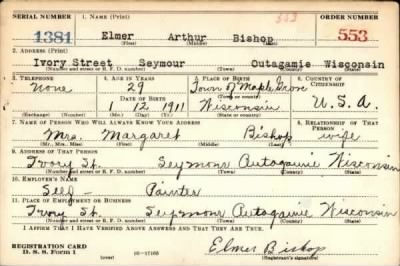 SERIAL NUMBER 1. NAME (Print) 353 ORDER NUMBER
1381 Elmer Arthur Bishop 553
(First) (Middle) (Last)
2. ADDRESS (Print)
Ivory Street Seymour Outagamie Wisconsin
(Number and street or R. F. D. number) (Town) (County) (State)
3. TELEPHONE 4. AGE IN YEARS 5. PLACE OF BIRTH 6. COUNTRY OF CITIZENSHIP
None 29 Town of Maple Grove
DATE OF BIRTH (Town or county)
1 12 1911 Wisconsin U.S.A.
(Mo.) (Day) (Yr.) (State or country)
7. NAME OF PERSON WHO WILL ALWAYS KNOW YOUR ADDRESS 8. RELATIONSHIP OF THAT PERSON
Mrs. Margaret Bishop wife
(Mr., Mrs., Miss) (First) (Middle) (Last)
9. ADDRESS OF THAT PERSON
Ivory St. Seymour Outagamie Wisconsin
(Number and street or R. F. D. number) (Town) (County) (State)
10. EMPLOYER'S NAME
Self - Painter
11. PLACE OF EMPLOYMENT OR BUSINESS
Ivory St. Seymour Outagamie Wisconsin
(Number and street or R. F. D. number) (Town) (County) (State)
I AFFIRM THAT I HAVE VERIFIED ABOVE ANSWERS AND THAT THEY ARE TRUE.
REGISTRATION CARD
D. S. S. Form 1 (over) 16-17105 Elmer Bishop
(Registrant's signature)